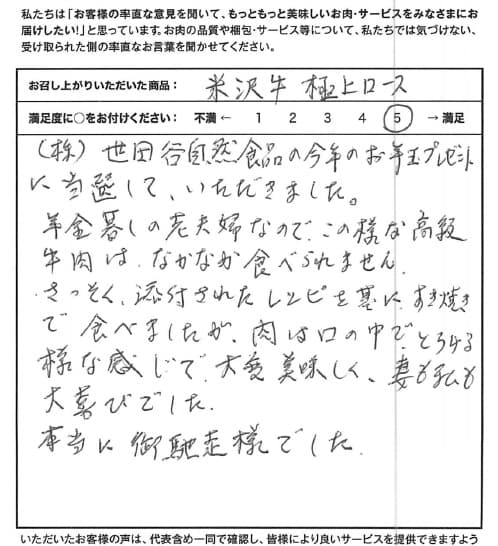 私たちは「お客様の率直な意見を聞いて、もっともっと美味しいお肉・サービスをみなさまにお
届けしたい!」と思っています。お肉の品質や梱包・サービス等について、私たちでは気づけない、
受け取られた側の率直なお言葉を聞かせてください。
お召し上がりいただいた商品： 米沢牛 極上ロース
満足度に○をお付けください： 不満 ← 1 2 3 4 5 → 満足
(株) 世田谷自然食品の今年のお年玉プレゼント
に当選して、いただきました。
年金暮しの老夫婦なので、この様な高級
牛肉は、なかなか食べられません。
さっそく、添付されたレシピを基に、すき焼き
で食べましたが、肉は口の中でとろける
様な感じで、大変美味しく、妻も私も
大喜びでした。
本当に御馳走様でした。
いただいたお客様の声は、代表含め一同で確認し、皆様により良いサービスを提供できますよう